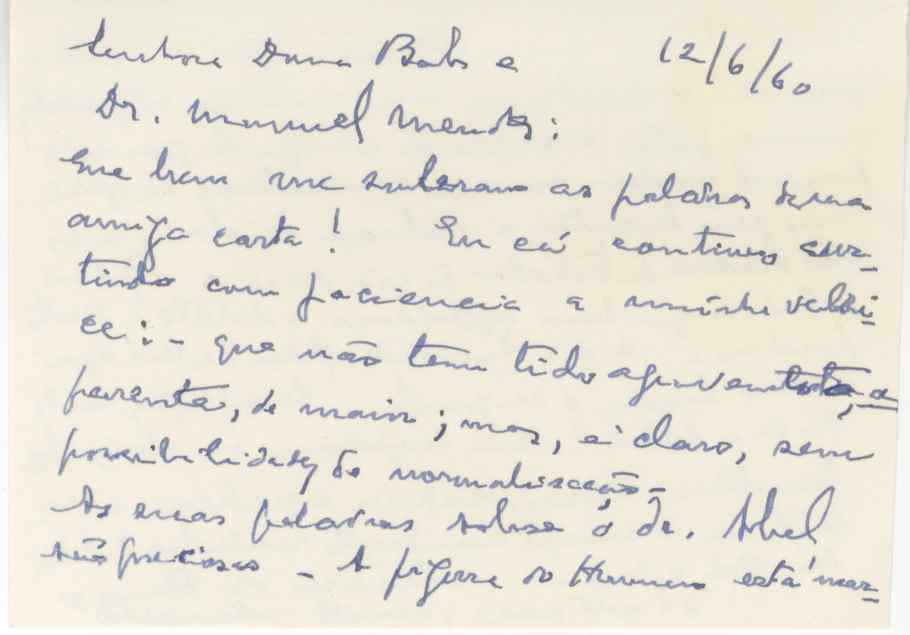 Senhora Dona Babs e 12/6/60
Dr. Manuel Mendes:
Que bem me souberam as palavras da sua
amiga carta! Eu cá continuo cur-
tindo com paciencia a minha velhi-
ce: - que não tem tido aparentote, a-
parente, de maior; mas, é claro, sem
possibilidades de normalização -
As suas palavras sobre o dr. Abel
são preciosas - A figura do Homem está mar-